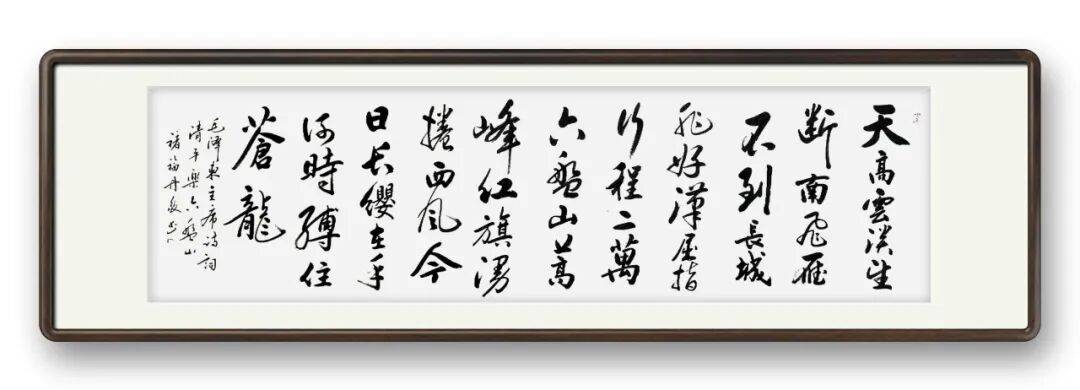 天高雲淡望
断南飛雁
不到長城
非好漢屈指
行程二萬
六盤山上高
峰紅旗漫
捲西風今
日長纓在手
何時縛住
蒼龍
毛澤東主席詩詞
清平樂六盤山
福丹